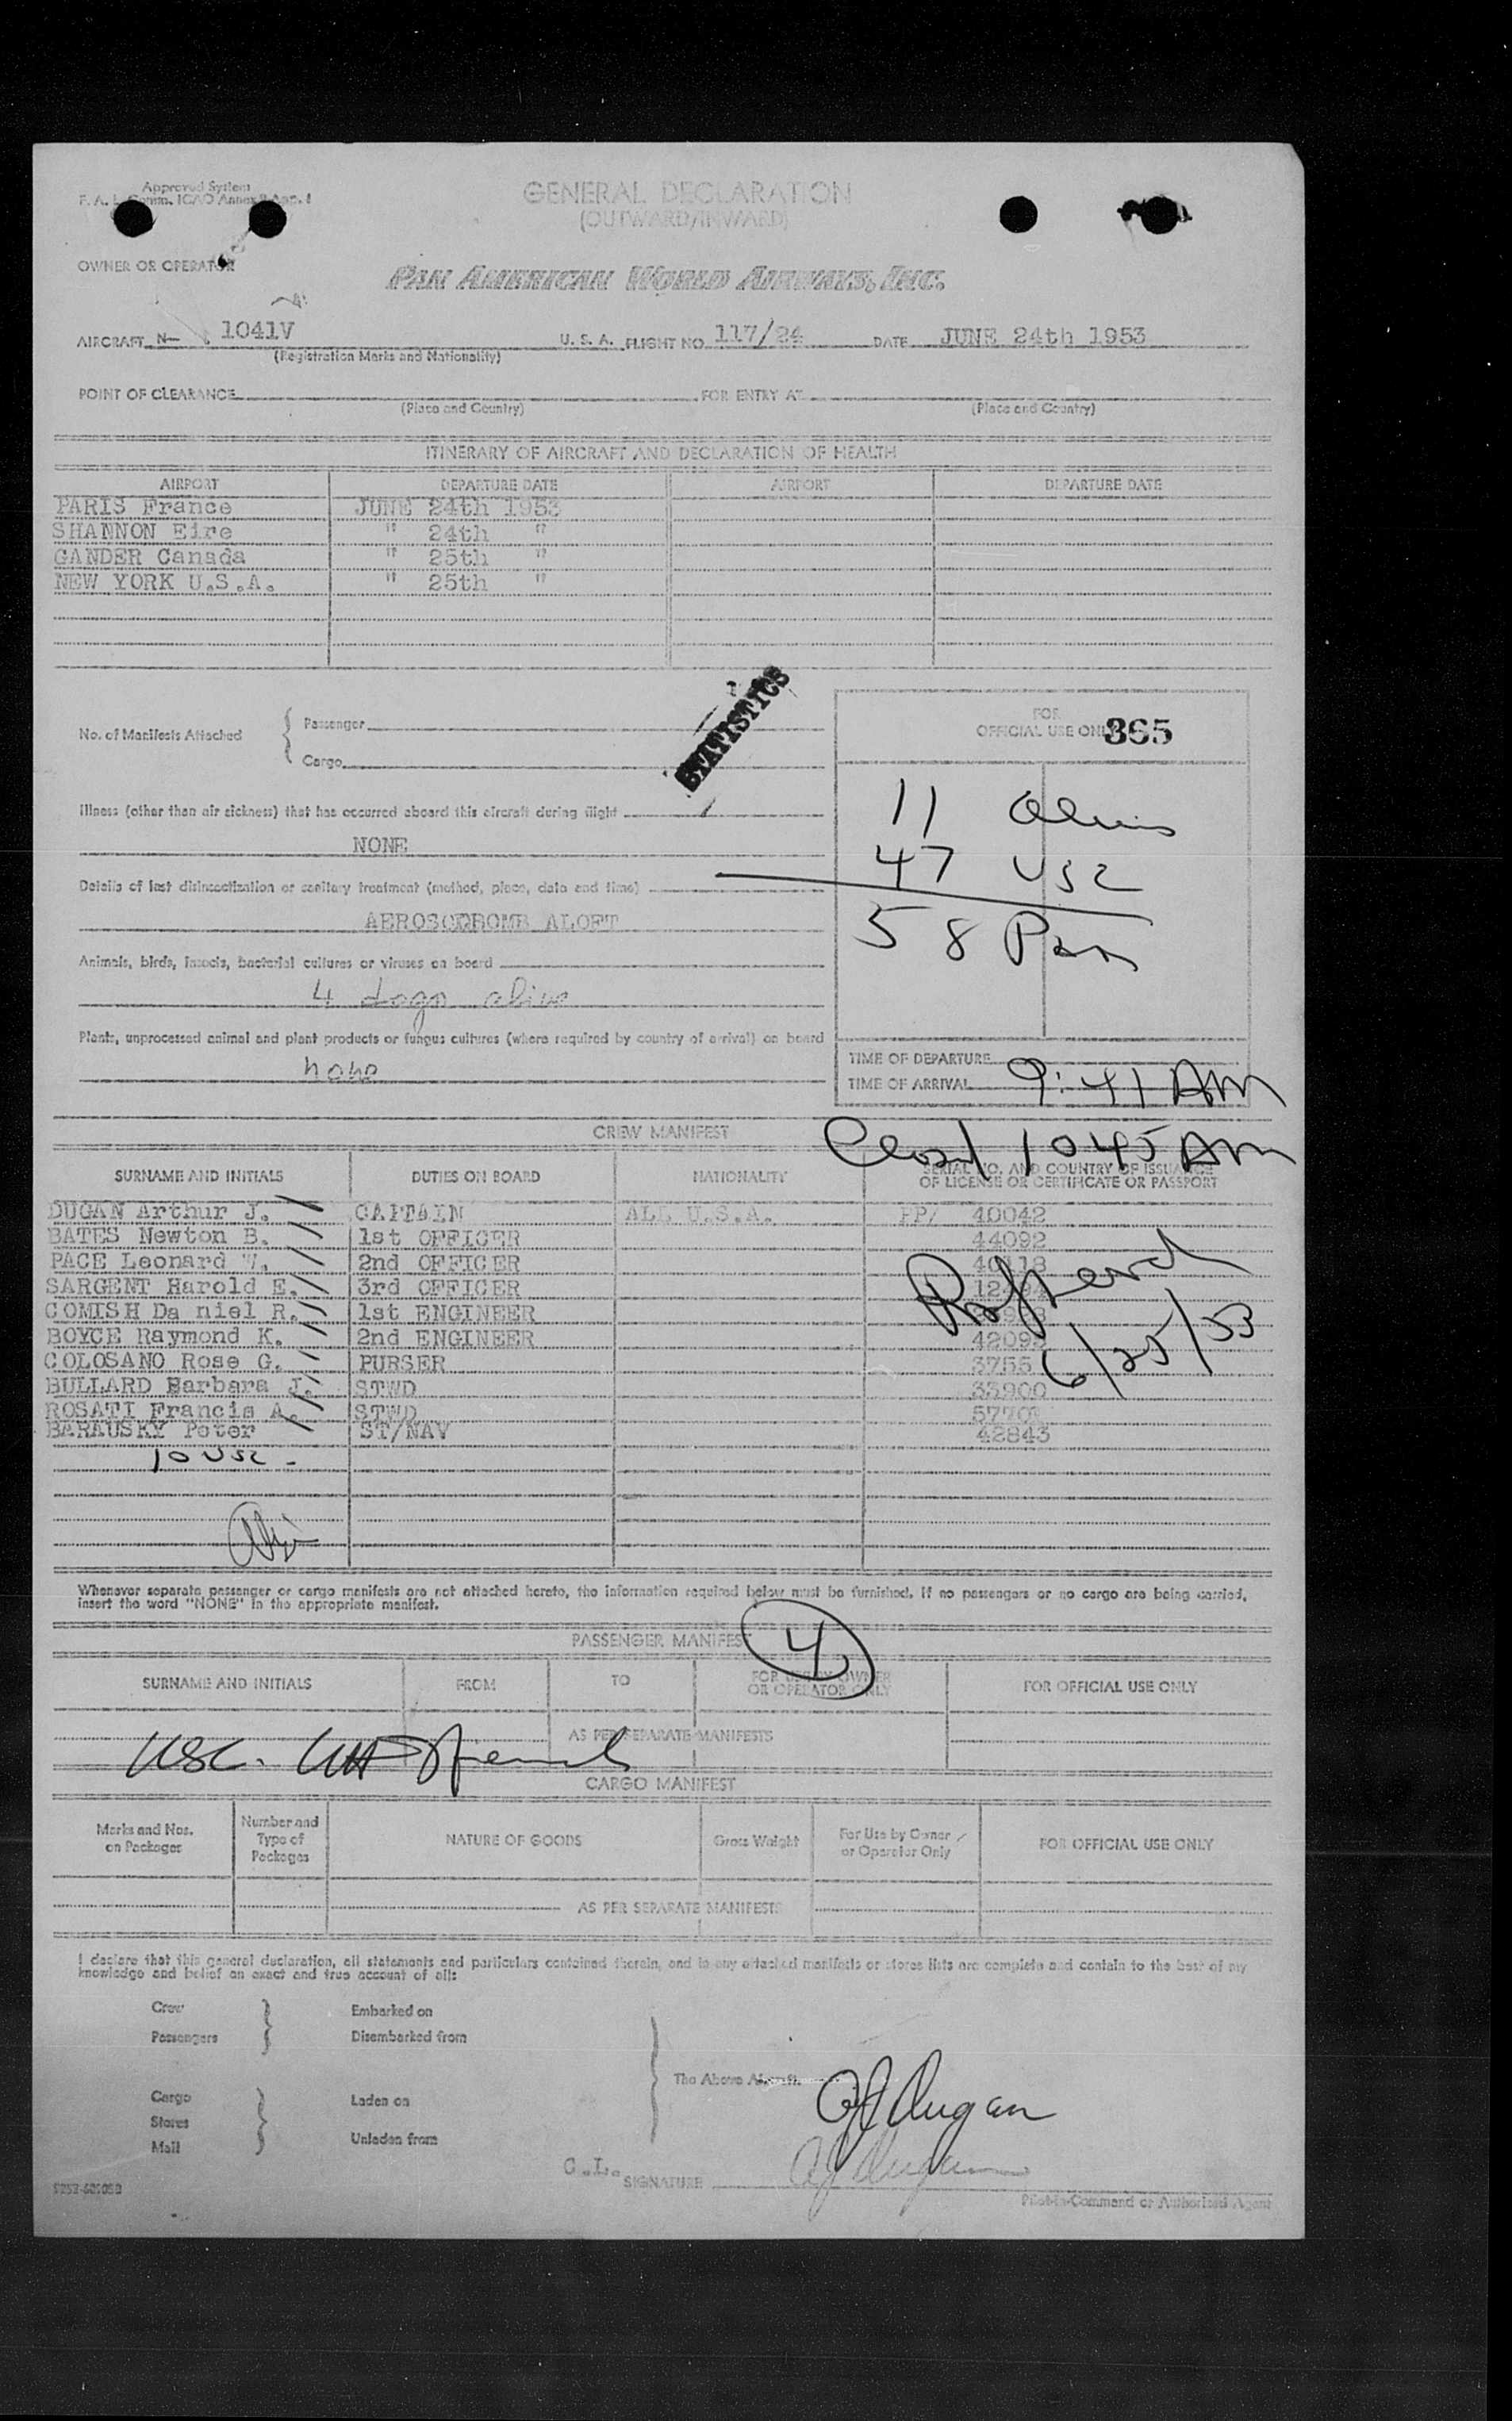 Approved System
F. A. L. Comm. ICAO Annex 9 App. 1
GENERAL DECLARATION
(OUTWARD/INWARD)
OWNER OR OPERATOR
PAN AMERICAN WORLD AIRWAYS, INC.
AIRCRAFT N- 1041V U. S. A. FLIGHT NO. 117/24 DATE JUNE 24th 1953
(Registration Marks and Nationality)
POINT OF CLEARANCE FOR ENTRY AT
(Place and Country) (Place and Country)
ITINERARY OF AIRCRAFT AND DECLARATION OF HEALTH
AIRPORT DEPARTURE DATE AIRPORT DEPARTURE DATE
PARIS France JUNE 24th 1953
SHANNON Eire " 24th "
GANDER Canada " 25th "
NEW YORK U.S.A. " 25th "
STATISTICS
No. of Manifests Attached { Passenger
Cargo
FOR
OFFICIAL USE ONLY 365
Illness (other than air sickness) that has occurred aboard this aircraft during flight
NONE
11 Aliens
47 USC
58 Pax
Details of last disinsectization or sanitary treatment (method, place, date and time)
AEROSOLBOMB ALOFT
Animals, birds, insects, bacterial cultures or viruses on board
4 dogs alive
Plants, unprocessed animal and plant products or fungus cultures (where required by country of arrival) on board
none
TIME OF DEPARTURE
TIME OF ARRIVAL 9:41 AM
Closed 1045 AM
CREW MANIFEST
SURNAME AND INITIALS DUTIES ON BOARD NATIONALITY SERIAL NO. AND COUNTRY OF ISSUANCE
OF LICENSE OR CERTIFICATE OR PASSPORT
DUGAN Arthur J. CAPTAIN ALL U.S.A. PP/ 40042
BATES Newton B. 1st OFFICER 44092
PACE Leonard W. 2nd OFFICER
SARGENT Harold E. 3rd OFFICER
COMISH Da niel R. 1st ENGINEER
BOYCE Raymond K. 2nd ENGINEER 42092
COLOSANO Rose G. PURSER 3755
BULLARD Barbara J. STWD 35900
ROSATI Francis A. STWD
BARAUSKY Peter ST/NAV 42843
6/25/53
10 USC -
Whenever separate passenger or cargo manifests are not attached hereto, the information required below must be furnished. If no passengers or no cargo are being carried,
insert the word "NONE" in the appropriate manifest.
PASSENGER MANIFEST 4
SURNAME AND INITIALS FROM TO FOR USE BY OWNER
OR OPERATOR ONLY FOR OFFICIAL USE ONLY
AS PER SEPARATE MANIFESTS
USC.
CARGO MANIFEST
Marks and Nos.
on Packages Number and
Type of
Packages NATURE OF GOODS Gross Weight For Use by Owner
or Operator Only FOR OFFICIAL USE ONLY
AS PER SEPARATE MANIFESTS
I declare that this general declaration, all statements and particulars contained therein, and in any attached manifests or stores lists are complete and contain to the best of my
knowledge and belief an exact and true account of all:
Crew Embarked on
Passengers Disembarked from
The Above Aircraft.
Cargo Laden on
Stores
Mail Unladen from
AJ Dugan
C.L. SIGNATURE AJ Dugan
Pilot-in-Command or Authorized Agent